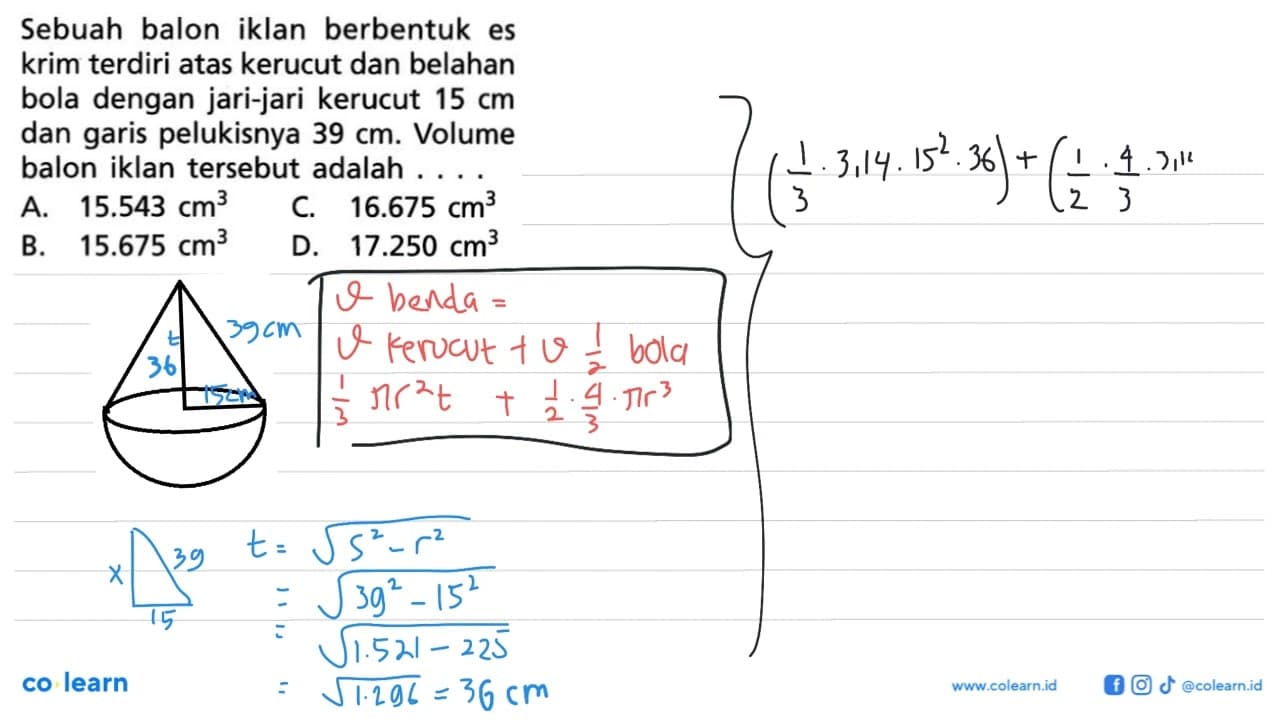 Sebuah balon iklan berbentuk es
krim terdiri atas kerucut dan belahan
bola dengan jari-jari kerucut 15 cm
dan garis pelukisnya 39 cm. Volume
balon iklan tersebut adalah . . . .
A. 15.543 cm³ C. 16.675 cm³
B. 15.675 cm³ D. 17.250 cm³
t
36
39 cm
15 cm
V benda =
V kerucut + V 1/2 bola
1/3 πr²t + 1/2 · 4/3 · πr³
x 39
15
t = √s² - r²
= √39² - 15²
= √1.521 - 225
= √1.296 = 36 cm
(1/3 · 3,14 · 15² · 36) + (1/2 · 4/3 · 3,1
co learn
www.colearn.id @colearn.id